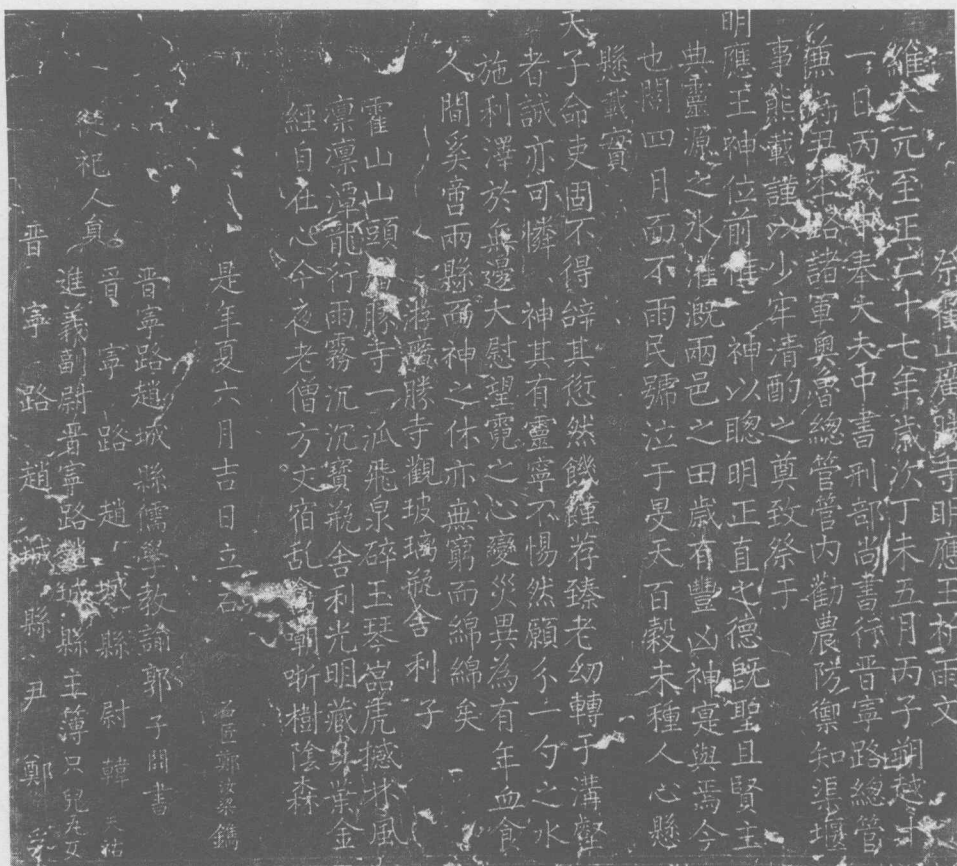 祭霍山廣勝寺明應王祈雨文
維大元至正二十七年歲次丁未五月丙子朔越十
一日丙戌中奉大夫中書刑部尚書行晉寧路總管
兼諸軍奧魯總管管內勸農防禦知渠堰
事熊載謹以少牢清酌之奠致祭于
明應王神位前惟神以聰明正直之德旣聖且賢主
典靈源之水灌溉兩邑之田歲有豐凶神寔與焉今
也閱四月而不雨民號泣于旻天百穀未種人心懸
懸載實
天子命吏固不得辭其愆然饑饉荐臻老幼轉于溝壑
者誠亦可憐神其有靈寧不惕然願分一勺之水
施利澤於無邊大慰望霓之心變災異為有年血食
人間奚啻兩縣而神之休亦無窮而綿綿矣
游廣勝寺觀玻璃瓶舍利子
霍山山頭廣勝寺一派飛泉碎玉琴嵓虎撼林風
凜凜潭龍行雨霧沉沉寶瓶舍利光明藏貝葉金
經自在心今夜老僧方丈宿亂朝晰樹陰森
是年夏六月吉日立石
石匠鄭汝梁鐫
晉寧路趙城縣儒學教諭郭子開書
從祀人員
晉寧路趙城縣尉韓天祐
進義副尉晉寧路趙城縣主簿只兒
晉寧路趙城縣尹鄭